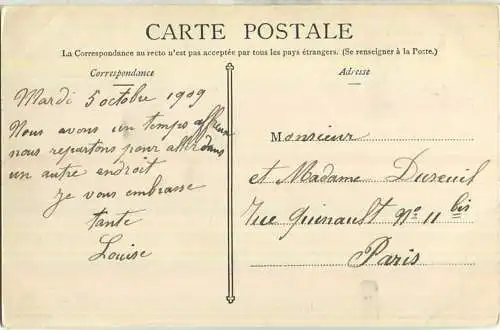 CARTE POSTALE
La Correspondance au recto n'est pas acceptée par tous les pays étrangers. (Se renseigner à la Poste.)
Correspondance
Mardi 5 octobre 1909
Nous avons un temps affreux
nous repartons pour aller dans
un autre endroit
Je vous embrasse
tante
Louise
Adresse
Monsieur
et Madame Dureuil
rue Quinault No 11 bis
Paris